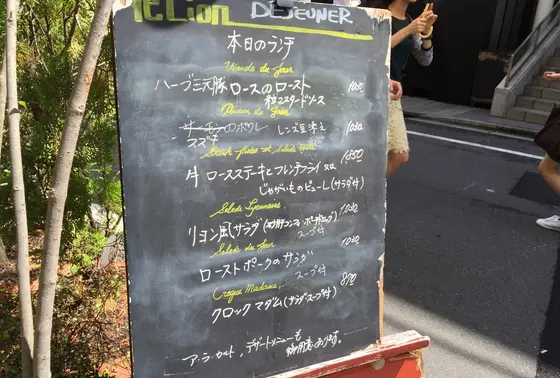 le Lion DÉJEUNER
本日のランチ
Viande du Jour
ハーブ三元豚 ロースのロースト 1050
粒マスタードソース
Poisson du Jour
サーモンのポワレ レンズ豆添え 1050
スズキ
Steak frites et salade verte
牛 ロースステーキとフレンチフライ 又は 1680
じゃがいものピューレ(サラダ付)
Salade Lyonnaise
リヨン風サラダ 1050
スープ付
Salade du Jour
ローストポークのサラダ 1050
スープ付
Croque Madame
クロックマダム(サラダスープ付) 840
ア・ラ・カルト、デザートメニューも
御用意あります。